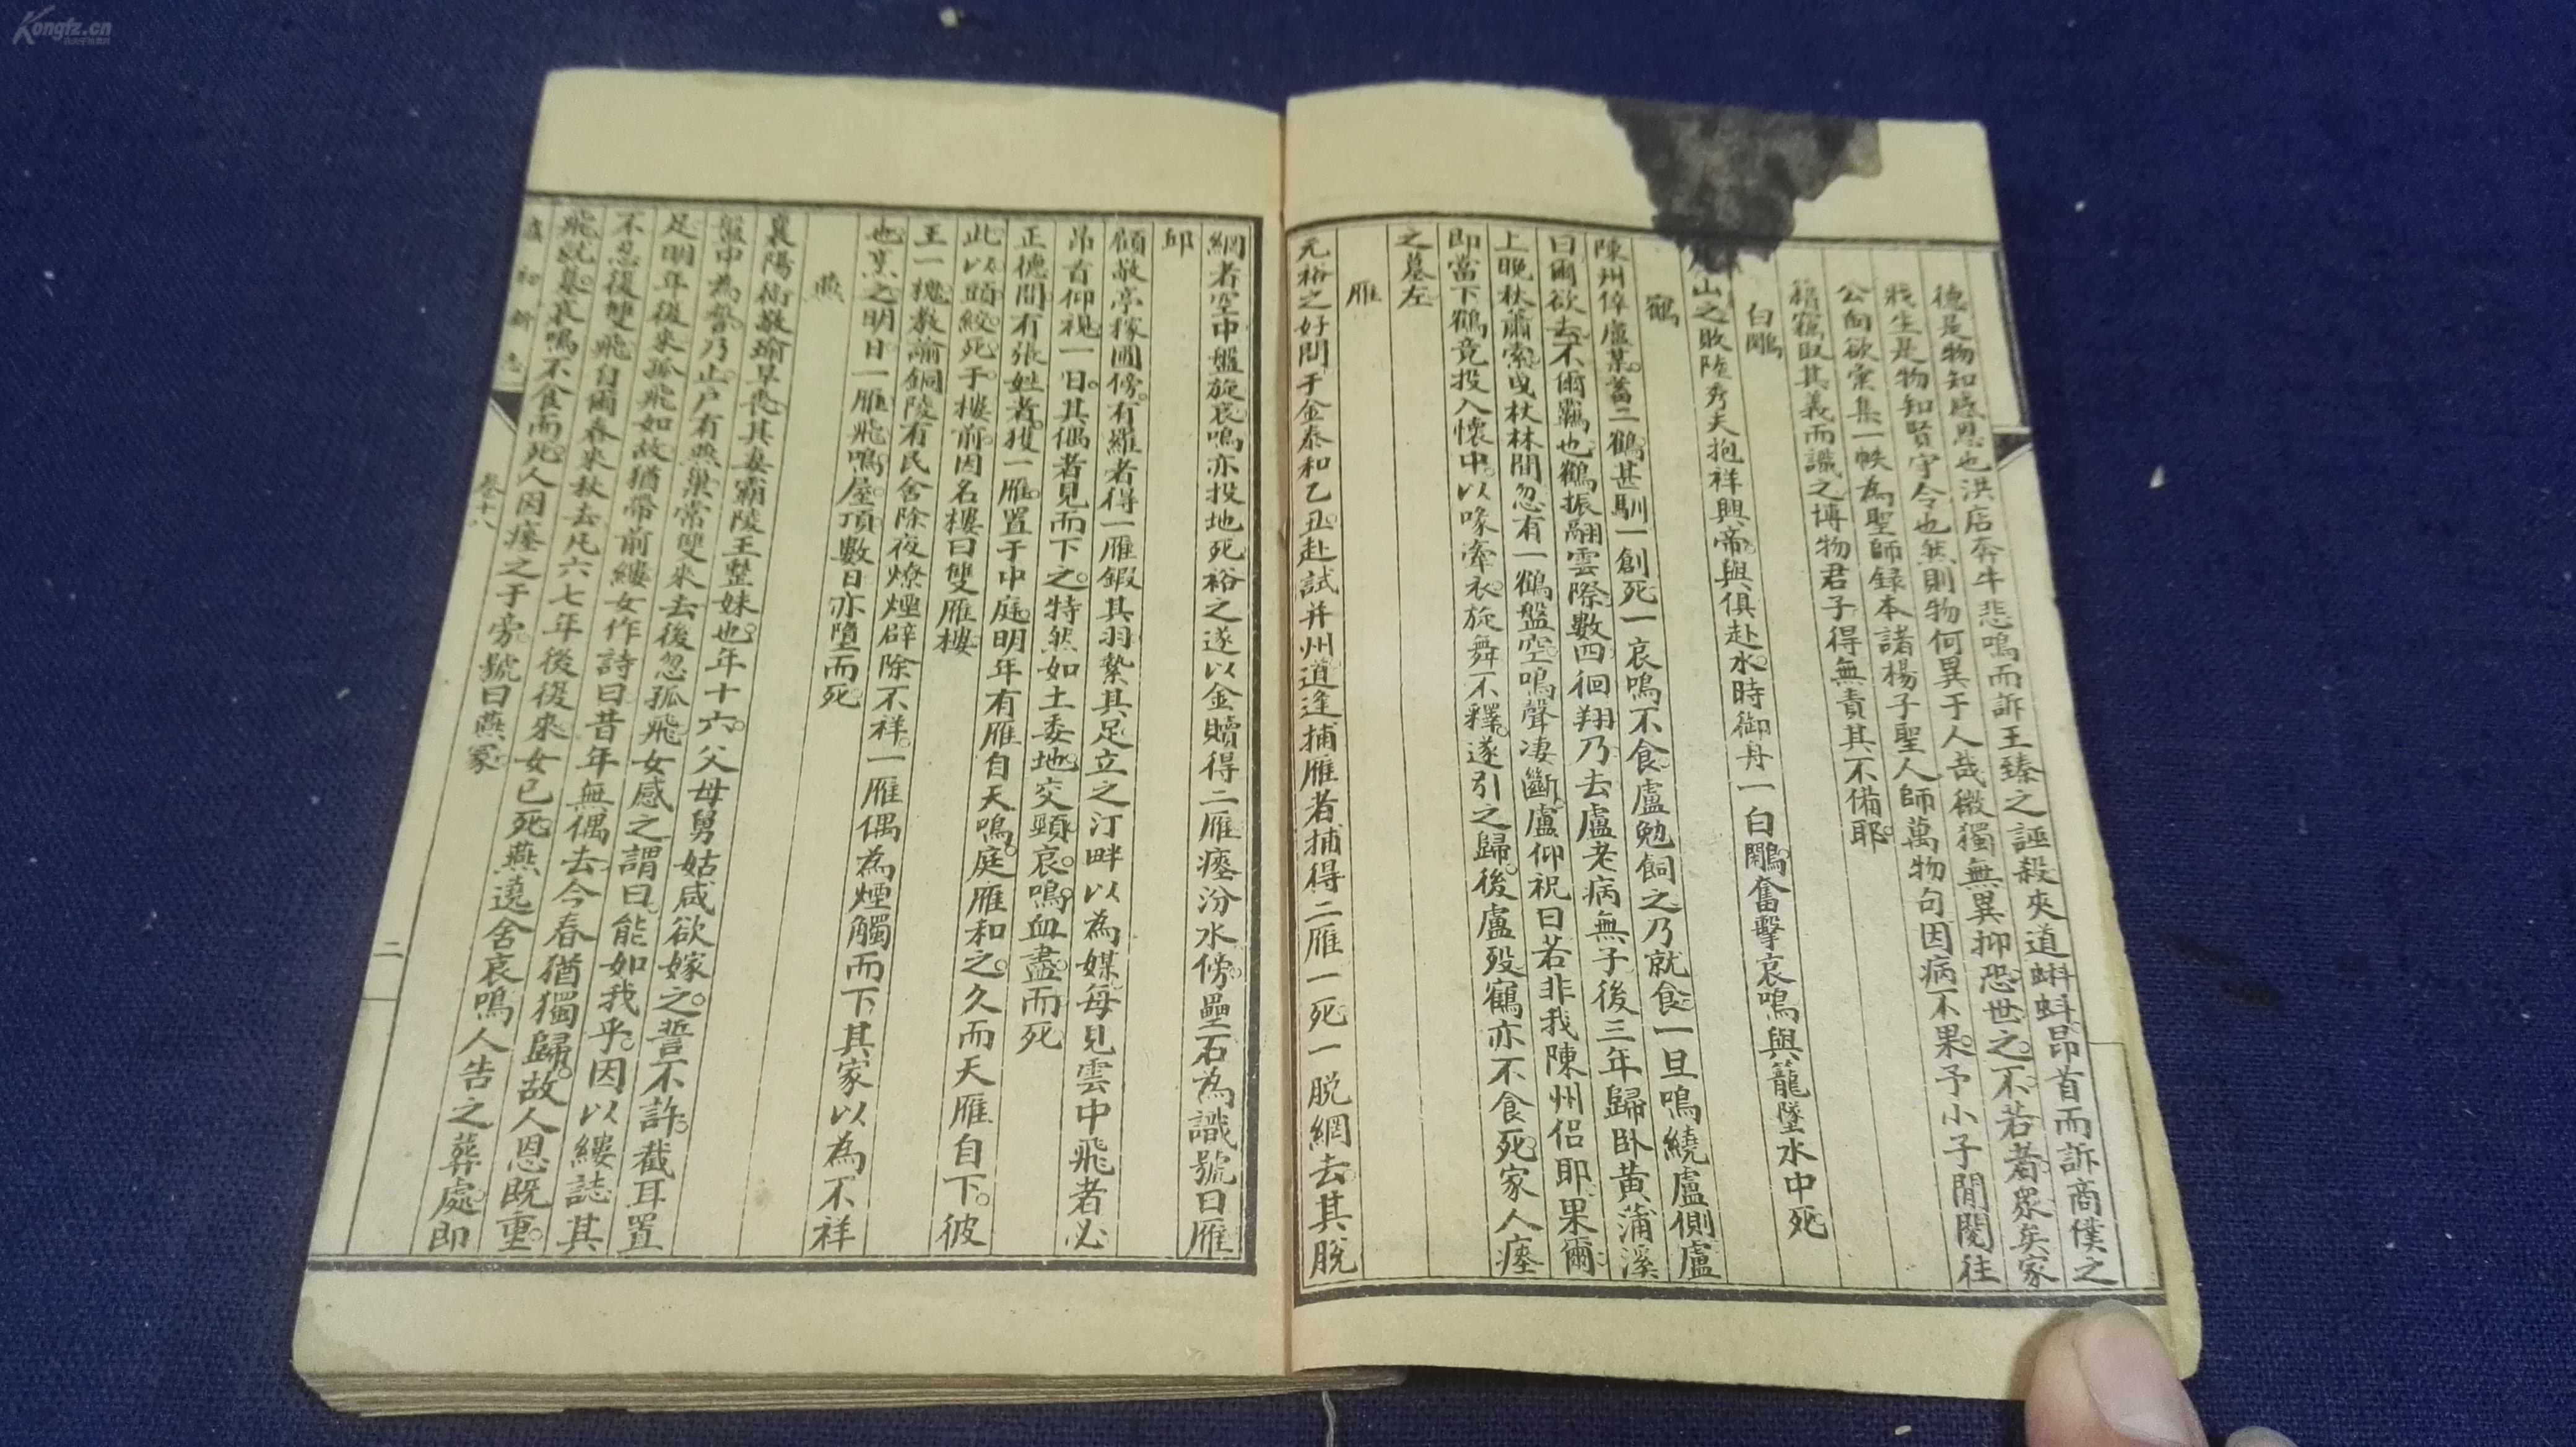 德是物知感恩也洪店奔牛悲鳴而訴王臻之誣殺夾道蝌蚪昂首而訴商僕之
戕生是物知賢守令也然則物何異于人哉微獨無異抑恐世之不若者眾矣家
公向欲彙集一帙為聖師錄本諸楊子聖人師萬物句因病不果予小子閒閱往
籍竊取其義而識之博物君子得無責其不備耶
白鷴
山之敗陸秀夫抱祥興帝與俱赴水時御舟一白鷴奮擊哀鳴與籠墜水中死
鶴
陳州倅盧某蓄二鶴甚馴一創死一哀鳴不食盧勉飼之乃就食一旦鳴繞盧側盧
曰爾欲去不爾羈也鶴振翮雲際數四徊翔乃去盧老病無子後三年歸卧黃蒲溪
上晚秋蕭索曳杖林間忽有一鶴盤空鳴聲凄斷盧仰祝曰若非我陳州侶耶果爾
即當下鶴竟投入懷中以喙牽衣旋舞不釋遂引之歸後盧歿鶴亦不食死家人瘞
之墓左
雁
元裕之好問于金泰和乙丑赴試并州道逢捕雁者捕得二雁一死一脫網去其脫
網者空中盤旋哀鳴亦投地死裕之遂以金贖得二雁瘞汾水傍壘石為識號曰雁
邱
顧敬亭稼圃傍有羅者得一雁鎩其羽縶其足立之汀畔以為媒每見雲中飛者必
昂首仰視一日其偶者見而下之特然如土委地交頸哀鳴血盡而死
正德間有張姓者獲一雁置于中庭明年有雁自天鳴庭雁和之久而天雁自下彼
此以頭絞死于樓前因名樓曰雙雁樓
王一槐教諭銅陵有民舍除夜燎煙辟除不祥一雁偶為煙觸而下其家以為不祥
也烹之明日一雁飛鳴屋頂數日亦墮而死
燕
襄陽衛敬瑜早喪其妻霸陵王整妹也年十六父母舅姑咸欲嫁之誓不許截耳置
盤中為誓乃止户有燕巢常雙來去後忽孤飛女感之謂曰能如我乎因以縷誌其
足明年復來孤飛如故猶帶前縷女作詩曰昔年無偶去今春猶獨歸故人恩既重
不忍復雙飛自爾春來秋去凡六七年後復來女已死燕遶舍哀鳴人告之葬處即
飛就墓哀鳴不食而死人因瘞之于旁號曰燕冢
虞初新志
卷十八
二
Kongfz.cn